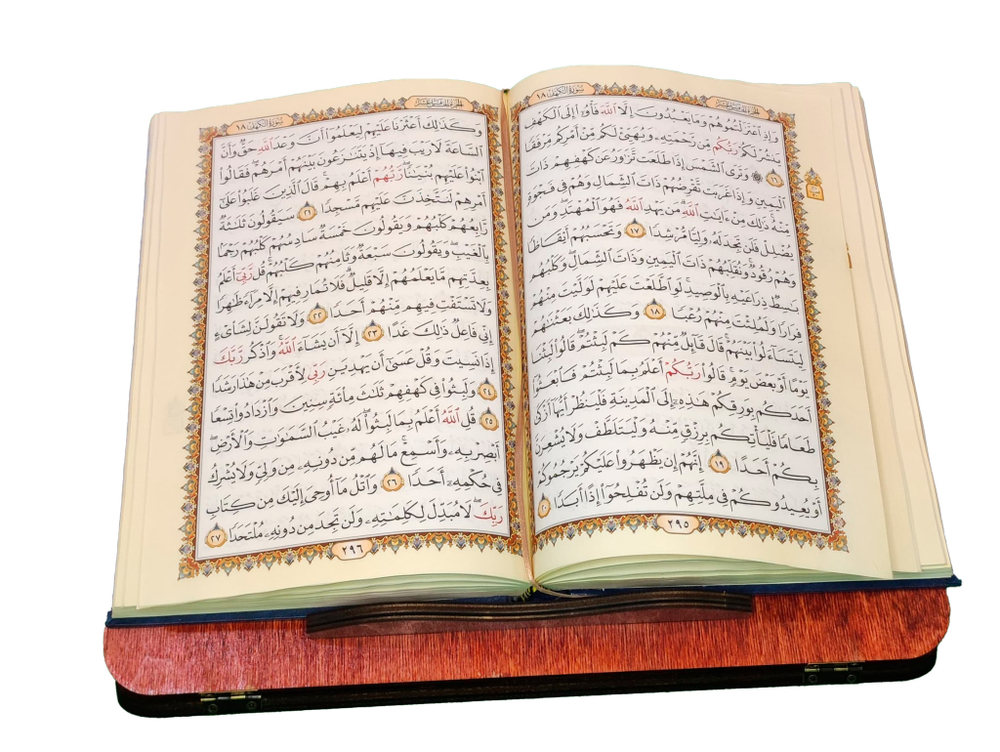 سُورَةُ الكَهْفِ ١٨
الجُزْءُ الخَامِسَ عَشَرَ
وَإِذِ ٱعْتَزَلْتُمُوهُمْ وَمَا يَعْبُدُونَ إِلَّا ٱللَّهَ فَأْوُۥٓا۟ إِلَى ٱلْكَهْفِ
يَنشُرْ لَكُمْ رَبُّكُم مِّن رَّحْمَتِهِۦ وَيُهَيِّئْ لَكُم مِّنْ أَمْرِكُم مِّرْفَقًا
١٦ ۞ وَتَرَى ٱلشَّمْسَ إِذَا طَلَعَت تَّزَٰوَرُ عَن كَهْفِهِمْ ذَاتَ
ٱلْيَمِينِ وَإِذَا غَرَبَت تَّقْرِضُهُمْ ذَاتَ ٱلشِّمَالِ وَهُمْ فِى فَجْوَةٍ
مِّنْهُ ۚ ذَٰلِكَ مِنْ ءَايَٰتِ ٱللَّهِ ۗ مَن يَهْدِ ٱللَّهُ فَهُوَ ٱلْمُهْتَدِ ۖ وَمَن
يُضْلِلْ فَلَن تَجِدَ لَهُۥ وَلِيًّا مُّرْشِدًا ١٧ وَتَحْسَبُهُمْ أَيْقَاظًا
وَهُمْ رُقُودٌ ۚ وَنُقَلِّبُهُمْ ذَاتَ ٱلْيَمِينِ وَذَاتَ ٱلشِّمَالِ ۖ وَكَلْبُهُم
بَٰسِطٌ ذِرَاعَيْهِ بِٱلْوَصِيدِ ۚ لَوِ ٱطَّلَعْتَ عَلَيْهِمْ لَوَلَّيْتَ مِنْهُمْ
فِرَارًا وَلَمُلِئْتَ مِنْهُمْ رُعْبًا ١٨ وَكَذَٰلِكَ بَعَثْنَٰهُمْ
لِيَتَسَآءَلُوا۟ بَيْنَهُمْ ۚ قَالَ قَآئِلٌ مِّنْهُمْ كَمْ لَبِثْتُمْ ۖ قَالُوا۟ لَبِثْنَا
يَوْمًا أَوْ بَعْضَ يَوْمٍ ۚ قَالُوا۟ رَبُّكُمْ أَعْلَمُ بِمَا لَبِثْتُمْ فَٱبْعَثُوٓا۟
أَحَدَكُم بِوَرِقِكُمْ هَٰذِهِۦٓ إِلَى ٱلْمَدِينَةِ فَلْيَنظُرْ أَيُّهَآ أَزْكَىٰ
طَعَامًا فَلْيَأْتِكُم بِرِزْقٍ مِّنْهُ وَلْيَتَلَطَّفْ وَلَا يُشْعِرَنَّ
بِكُمْ أَحَدًا ١٩ إِنَّهُمْ إِن يَظْهَرُوا۟ عَلَيْكُمْ يَرْجُمُوكُمْ
أَوْ يُعِيدُوكُمْ فِى مِلَّتِهِمْ وَلَن تُفْلِحُوٓا۟ إِذًا أَبَدًا ٢٠
٢٩٥
سُورَةُ الكَهْفِ ١٨
الجُزْءُ الخَامِسَ عَشَرَ
وَكَذَٰلِكَ أَعْثَرْنَا عَلَيْهِمْ لِيَعْلَمُوٓا۟ أَنَّ وَعْدَ ٱللَّهِ حَقٌّ وَأَنَّ
ٱلسَّاعَةَ لَا رَيْبَ فِيهَآ إِذْ يَتَنَٰزَعُونَ بَيْنَهُمْ أَمْرَهُمْ ۖ فَقَالُوا۟
ٱبْنُوا۟ عَلَيْهِم بُنْيَٰنًا ۖ رَّبُّهُمْ أَعْلَمُ بِهِمْ ۚ قَالَ ٱلَّذِينَ غَلَبُوا۟ عَلَىٰٓ
أَمْرِهِمْ لَنَتَّخِذَنَّ عَلَيْهِم مَّسْجِدًا ٢١ سَيَقُولُونَ ثَلَٰثَةٌ
رَّابِعُهُمْ كَلْبُهُمْ وَيَقُولُونَ خَمْسَةٌ سَادِسُهُمْ كَلْبُهُمْ رَجْمًۢا
بِٱلْغَيْبِ ۖ وَيَقُولُونَ سَبْعَةٌ وَثَامِنُهُمْ كَلْبُهُمْ ۚ قُل رَّبِّىٓ أَعْلَمُ
بِعِدَّتِهِم مَّا يَعْلَمُهُمْ إِلَّا قَلِيلٌ ۗ فَلَا تُمَارِ فِيهِمْ إِلَّا مِرَآءً ظَٰهِرًا
وَلَا تَسْتَفْتِ فِيهِم مِّنْهُمْ أَحَدًا ٢٢ وَلَا تَقُولَنَّ لِشَا۟ىْءٍ
إِنِّى فَاعِلٌ ذَٰلِكَ غَدًا ٢٣ إِلَّآ أَن يَشَآءَ ٱللَّهُ ۚ وَٱذْكُر رَّبَّكَ
إِذَا نَسِيتَ وَقُلْ عَسَىٰٓ أَن يَهْدِيَنِ رَبِّى لِأَقْرَبَ مِنْ هَٰذَا رَشَدًا
٢٤ وَلَبِثُوا۟ فِى كَهْفِهِمْ ثَلَٰثَ مِا۟ئَةٍ سِنِينَ وَٱزْدَادُوا۟ تِسْعًا
٢٥ قُلِ ٱللَّهُ أَعْلَمُ بِمَا لَبِثُوا۟ ۖ لَهُۥ غَيْبُ ٱلسَّمَٰوَٰتِ وَٱلْأَرْضِ ۖ
أَبْصِرْ بِهِۦ وَأَسْمِعْ ۚ مَا لَهُم مِّن دُونِهِۦ مِن وَلِىٍّ وَلَا يُشْرِكُ
فِى حُكْمِهِۦٓ أَحَدًا ٢٦ وَٱتْلُ مَآ أُوحِىَ إِلَيْكَ مِن كِتَابِ
رَبِّكَ ۖ لَا مُبَدِّلَ لِكَلِمَٰتِهِۦ وَلَن تَجِدَ مِن دُونِهِۦ مُلْتَحَدًا ٢٧
٢٩٦